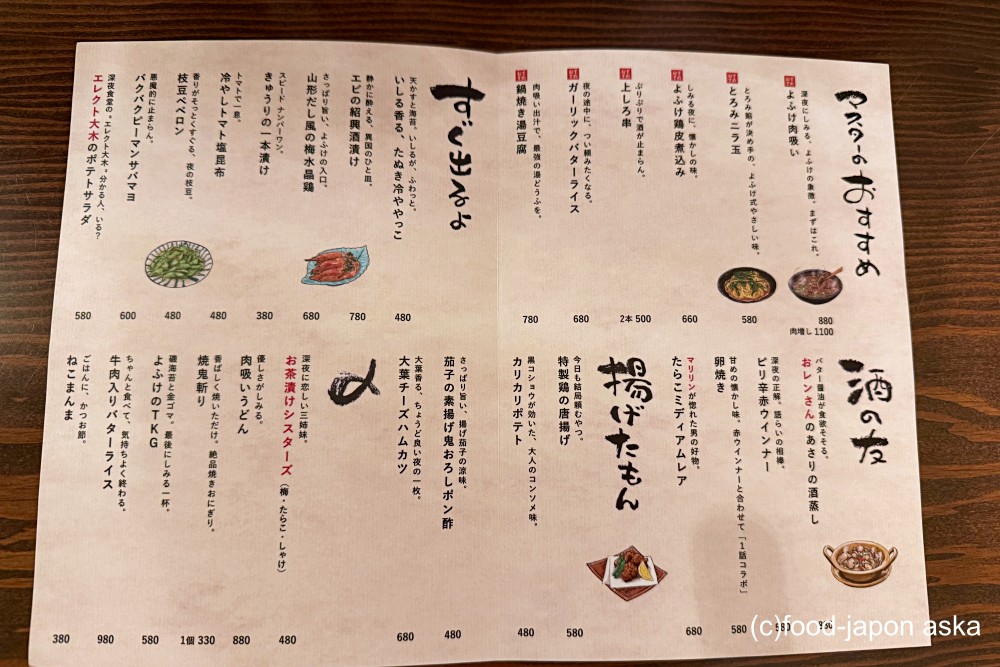 マスターのおすすめ
深夜にしみる、よふけの象徴。まずはこれ。
よふけ肉吸い
880
肉増し 1100
とろみ餡が決め手の、よふけ式やさしい味。
とろみニラ玉
580
しみる夜に、懐かしの味。
よふけ鶏皮煮込み
660
ぷりぷりで酒が止まらん。
上しろ串
2本 500
夜の途中に、つい頼みたくなる。
ガーリックバターライス
680
肉吸い出汁で、最強の湯どうふを。
鍋焼き湯豆腐
780
すぐ出るよ
天かすと海苔。いしるが、ふわっと。
いしる香る、たぬき冷ややっこ
480
静かに酔える、異国のひと皿。
エビの紹興酒漬け
780
さっぱり旨い、よふけの入口。
山形だし風の梅水晶鶏
680
スピード ナンバーワン。
きゅうりの一本漬け
380
トマトで一息。
冷やしトマト塩昆布
480
香りがそっとくすぐる、夜の枝豆。
枝豆ペペロン
480
悪魔的に止まらん。
バクバクピーマンサバマヨ
600
深夜食堂の"エレクト大木"分かる人、いる?
エレクト大木のポテトサラダ
580
酒の友
バター醤油が食欲そそる。
おレンさんのあさりの酒蒸し
深夜の正解。語らいの相棒。
ピリ辛赤ウインナー
580
甘めの懐かし味。赤ウインナーと合わせて「1話コラボ」
卵焼き
580
マリリンが惚れた男の好物。
たらこミディアムレア
680
揚げたもん
今日も結局頼むやつ。
特製鶏の唐揚げ
580
黒コショウが効いた、大人のコンソメ味。
カリカリポテト
480
さっぱり旨い、揚げ茄子の涼味。
茄子の素揚げ鬼おろしポン酢
480
大葉香る、ちょうど良い夜の一枚。
大葉チーズハムカツ
680
〆
深夜に恋しい三姉妹。
お茶漬けシスターズ(梅・たらこ・しゃけ)
480
優しさがしみる。
肉吸いうどん
880
香ばしく焼いただけ。絶品焼きおにぎり。
焼鬼斬り
1個 330
磯海苔と金ゴマ。最後にしみる一杯。
よふけのTKG
580
ちゃんと食べて、気持ちよく終わる。
牛肉入りバターライス
980
ごはんに、かつお節。
ねこまんま
380
(c)food-japon aska